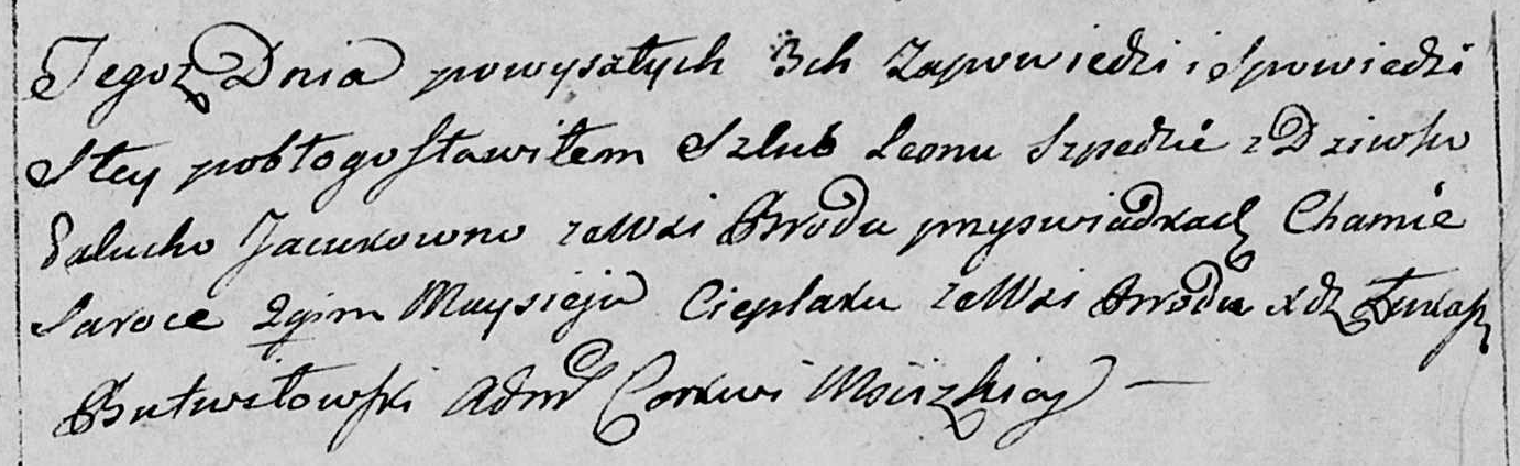 Tegoż Dnia powyszłych 3ch Zapowiedzi i Spowiedzi
Stey pobłogosławiłem Szlub Leonu Szpedzie z Dziwko
Jacukowno ze Wsi Brodu przy swiadkach Chamie
Saroce 2gim Maysieju Cieplaku ze Wsi Brodu Xdz Łukasz
Butwiłowski Adm Cerkwi